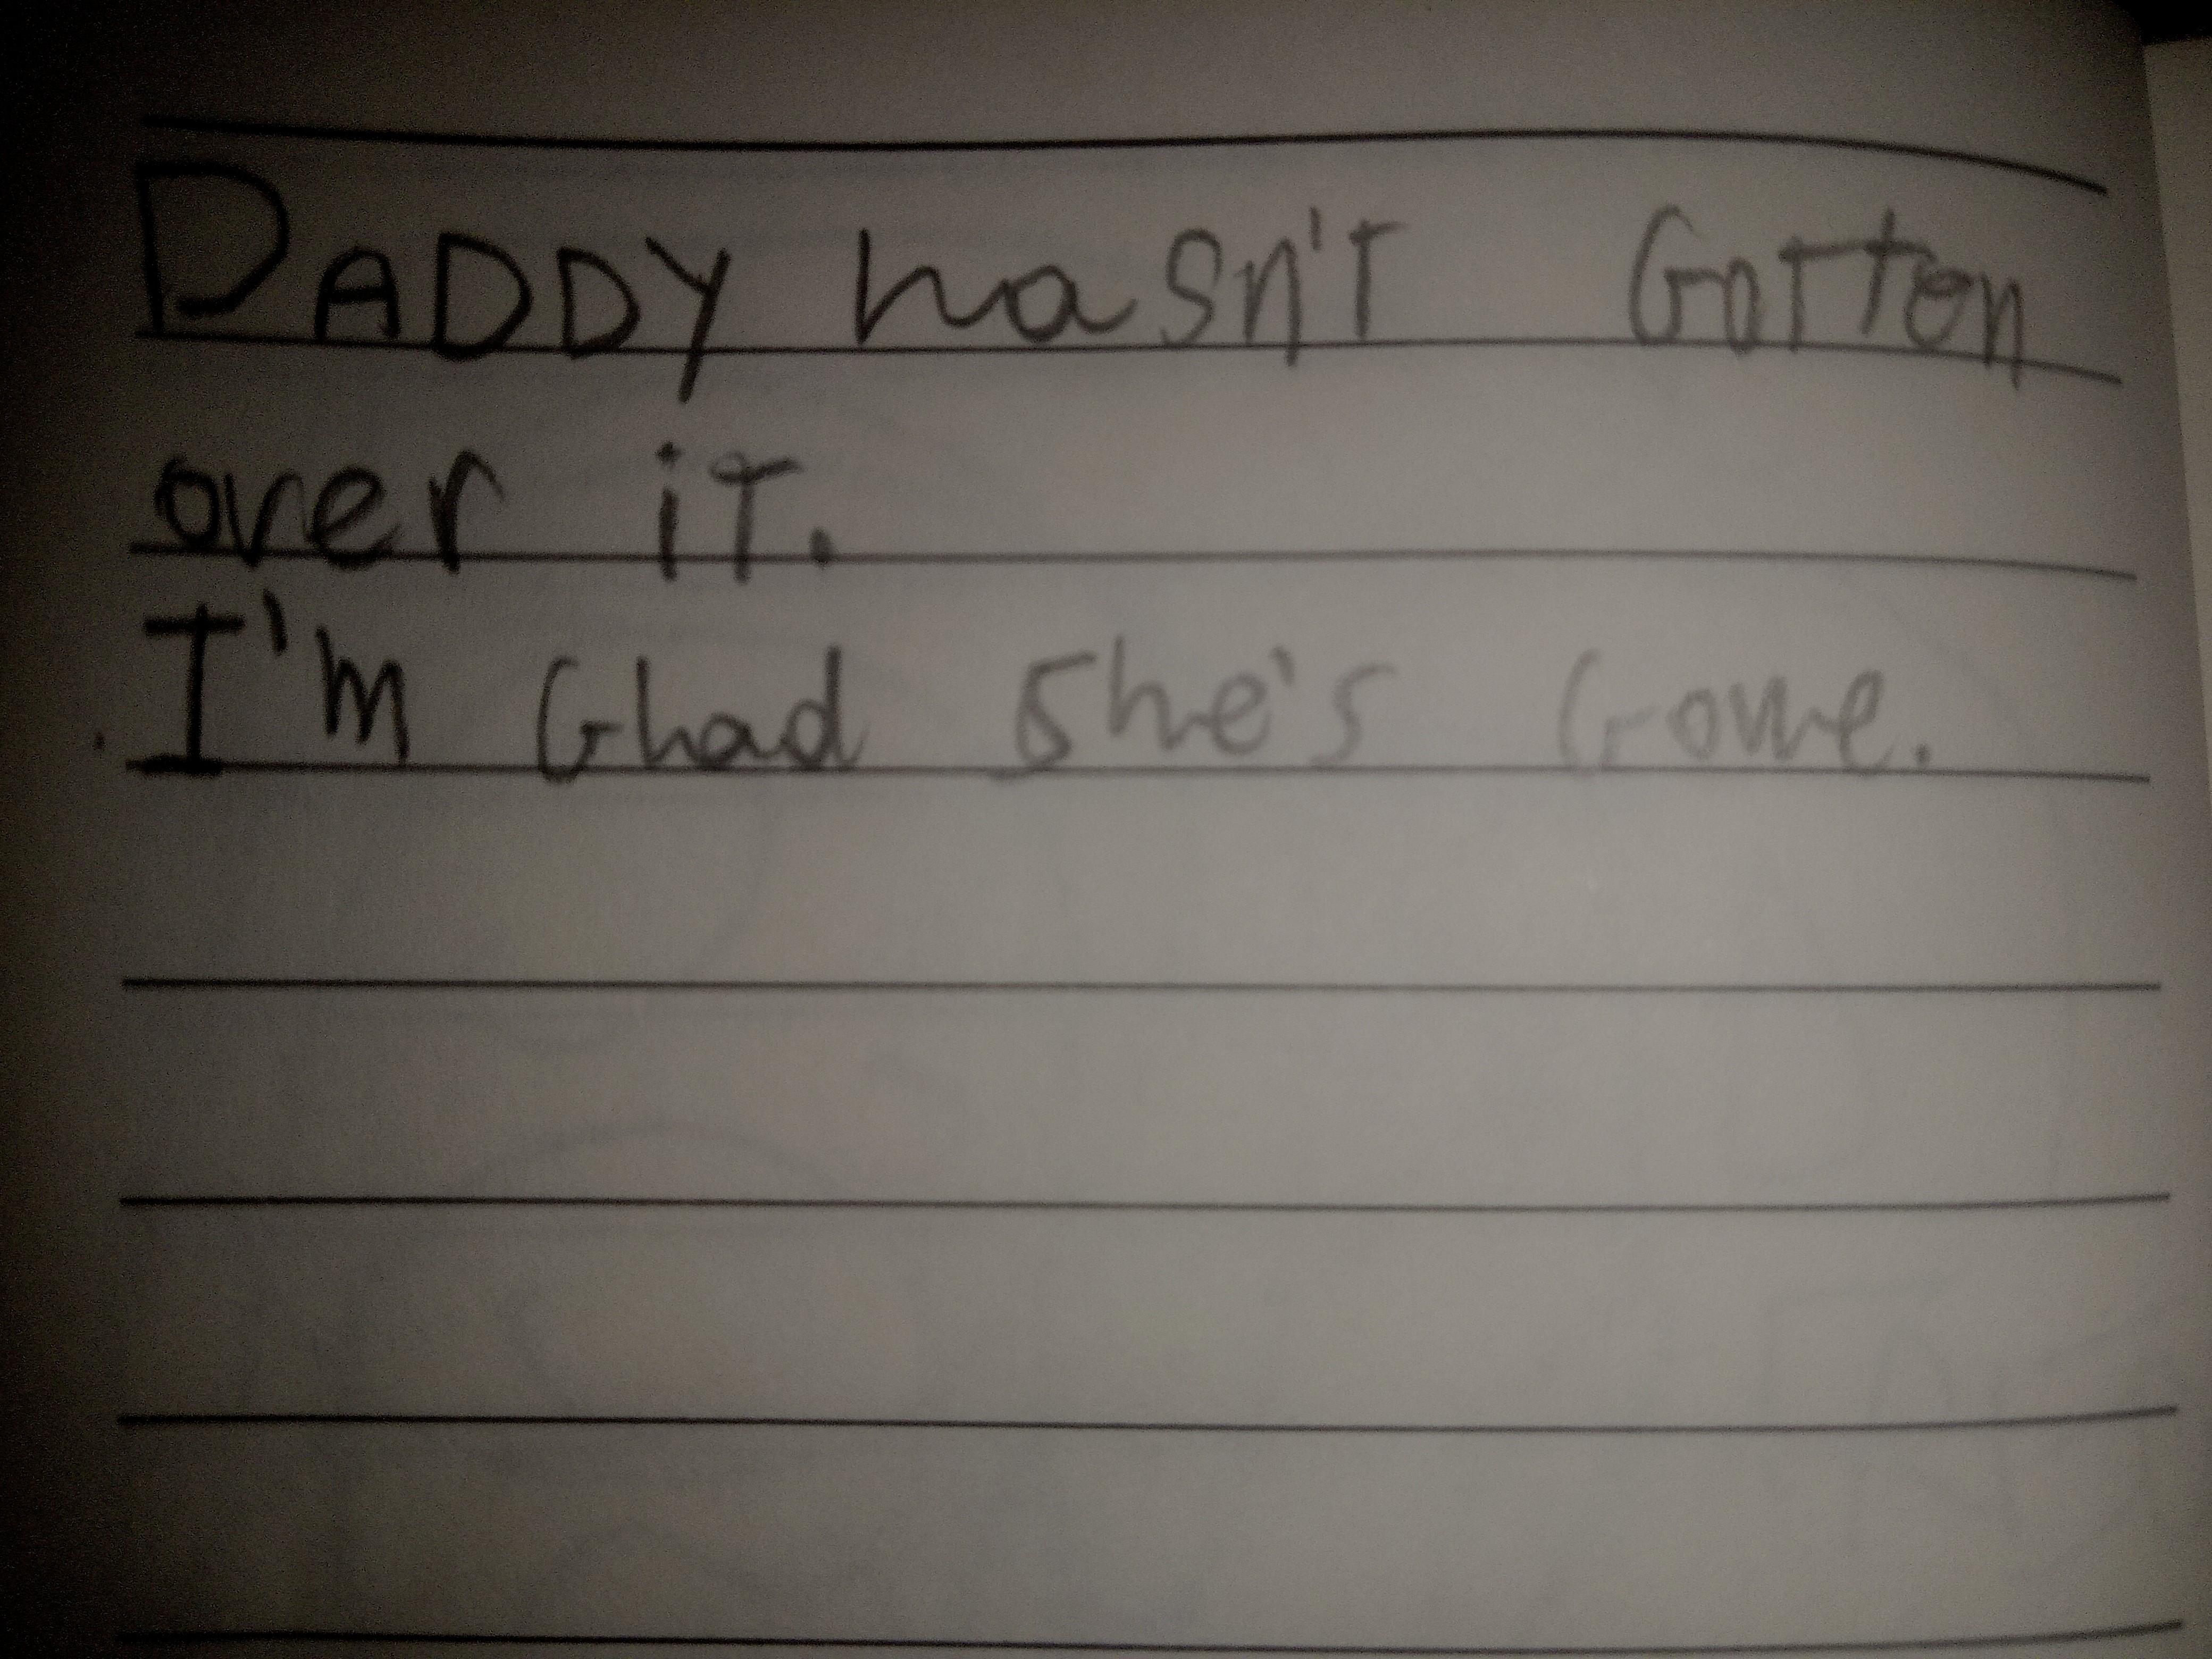 DADDY hasn't Gotten
over it.
I'm Ghad She's Gone.